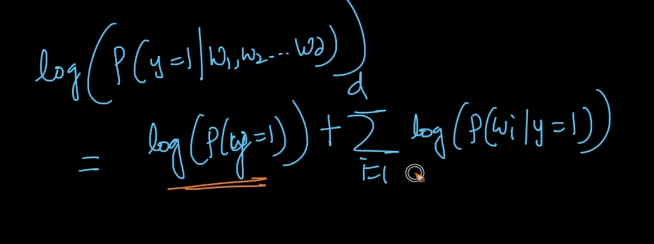 log(P(y=1|w1,w2...wd))
= log(P(y=1)) + d∑i=1 log(P(wi|y=1))